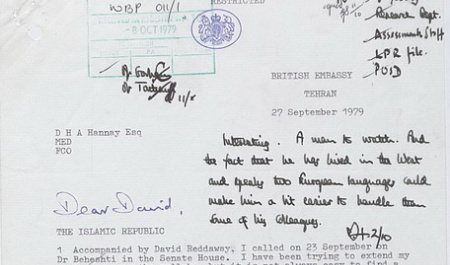 RESTRICTED
WBP 011/1
-8 OCT 1979
Research Dept.
Assessments Staff
LPR file.
POID
11/8
BRITISH EMBASSY
TEHRAN
27 September 1979
D H A Hannay Esq
MED
FCO
Interesting. A man to watch. And
the fact that he has lived in the West
and speaks two European languages could
make him a bit easier to handle than
some of his colleagues.
2/10
Dear David,
THE ISLAMIC REPUBLIC
1 Accompanied by David Reddaway, I called on 23 September on
Dr Beheshti in the Senate House. I have been trying to extend my